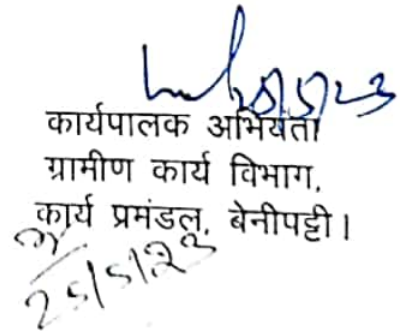 25/5/23
कार्यपालक अभियंता
ग्रामीण कार्य विभाग,
कार्य प्रमंडल, बेनीपट्टी।
25/5/23